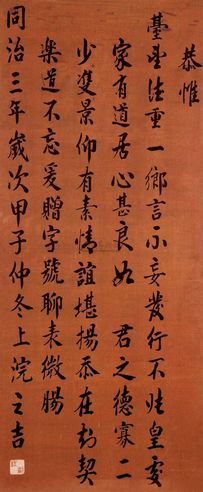 恭惟
臺望法重一鄉言不妄發行不皇處
家有道居心甚良如 君之德寡二
少雙景仰有素情誼堪揚忝在契
樂道不忘爰贈字號聊表微腸
同治三年歲次甲子仲冬上浣之吉